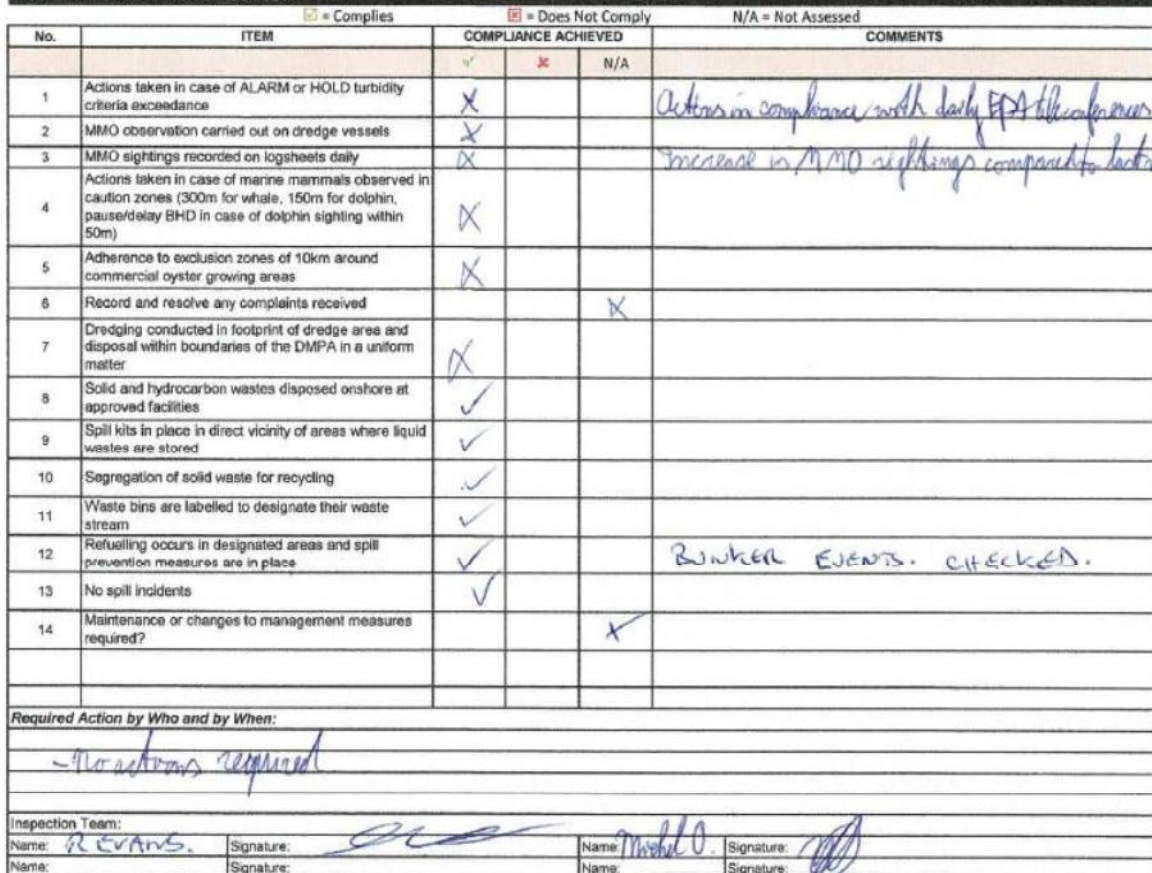 ☑ = Complies ☒ = Does Not Comply N/A = Not Assessed
No. ITEM COMPLIANCE ACHIEVED COMMENTS
✓ ✗ N/A
1 Actions taken in case of ALARM or HOLD turbidity
criteria exceedance X Actions in compliance with daily EPA teleconferences
2 MMO observation carried out on dredge vessels X
3 MMO sightings recorded on logsheets daily X Increase in MMO sightings compared to last
4 Actions taken in case of marine mammals observed in
caution zones (300m for whale, 150m for dolphin,
pause/delay BHD in case of dolphin sighting within
50m) X
5 Adherence to exclusion zones of 10km around
commercial oyster growing areas X
6 Record and resolve any complaints received X
7 Dredging conducted in footprint of dredge area and
disposal within boundaries of the DMPA in a uniform
matter X
8 Solid and hydrocarbon wastes disposed onshore at
approved facilities ✓
9 Spill kits in place in direct vicinity of areas where liquid
wastes are stored ✓
10 Segregation of solid waste for recycling ✓
11 Waste bins are labelled to designate their waste
stream ✓
12 Refuelling occurs in designated areas and spill
prevention measures are in place ✓ BUNKER EVENTS. CHECKED.
13 No spill incidents ✓
14 Maintenance or changes to management measures
required? X
Required Action by Who and by When:
- No actions required
Inspection Team:
Name: R EVANS. Signature: Name: Michel O. Signature:
Name: Signature: Name: Signature: